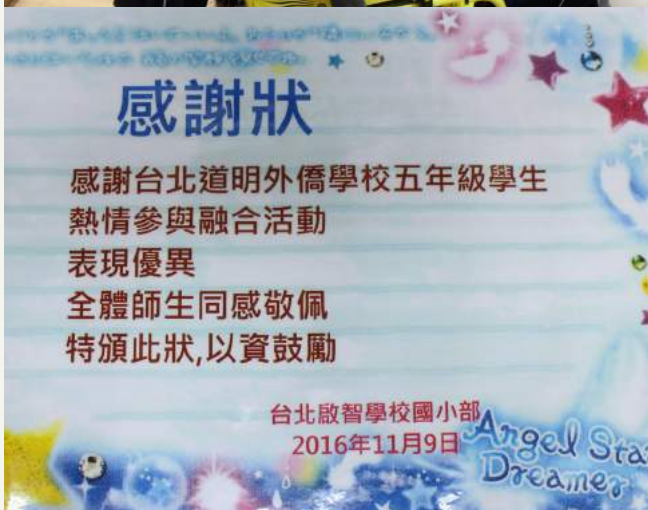 感謝狀
感謝台北道明外僑學校五年級學生
熱情參與融合活動
表現優異
全體師生同感敬佩
特頒此狀,以資鼓勵
台北啟智學校國小部
2016年11月9日
Angel Sta
Dreamer